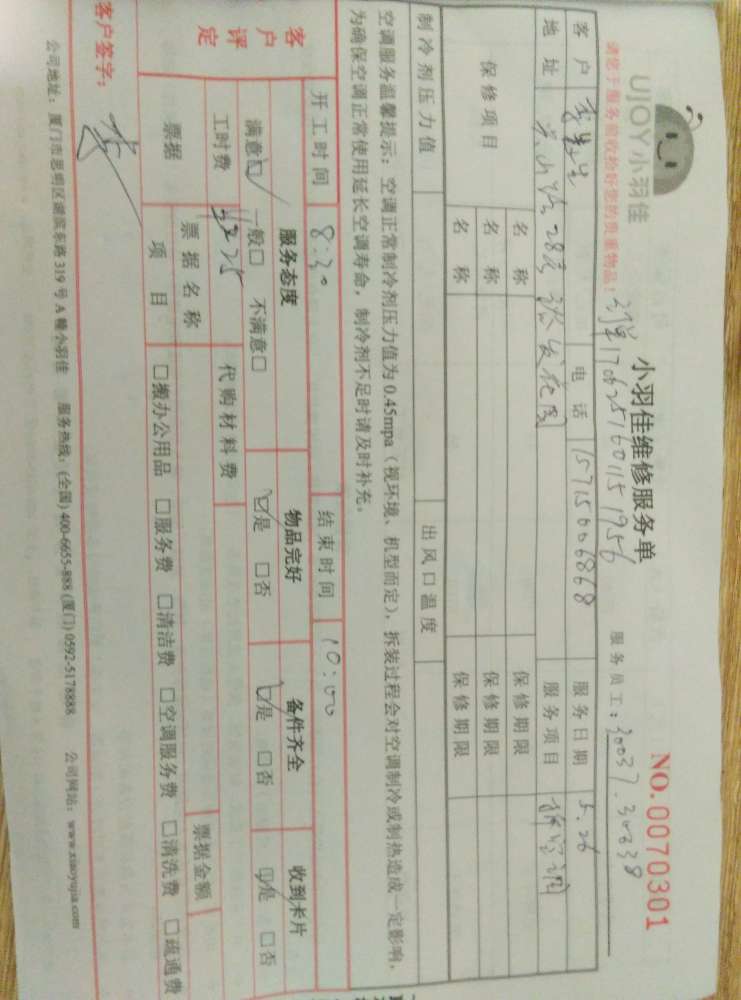 UJOY小羽佳
小羽佳维修服务单
NO.0070301
请您于服务前收拾好您的贵重物品！
服务员工：30037.30838
客户 电话 15715006868 服务日期 5.26
地址 28号 服务项目
保修项目 名称 保修期限
名称 保修期限
名称 保修期限
制冷剂压力值 出风口温度
空调服务温馨提示：空调正常制冷剂压力值为0.45mpa（视环境、机型而定），拆装过程会对空调制冷或制热造成一定影响，
为确保空调正常使用延长空调寿命，制冷剂不足时请及时补充。
开工时间 8:30 结束时间 10:00
客户评定
服务态度 物品完好 备件齐全 收到卡片
满意☑ 一般□ 不满意□ ☑是 □否 ☑是 □否 ☑是 □否
工时费 代购材料费
票据 票据名称 票据金额
项目 □搬办公用品 □服务费 □清洁费 □空调服务费 □清洗费 □疏通费
客户签字：
公司地址：厦门市思明区湖滨东路319号A幢小羽佳 服务热线：(全国)400-6655-888 (厦门)0592-5178888 公司网站：www.xiaoyujia.com